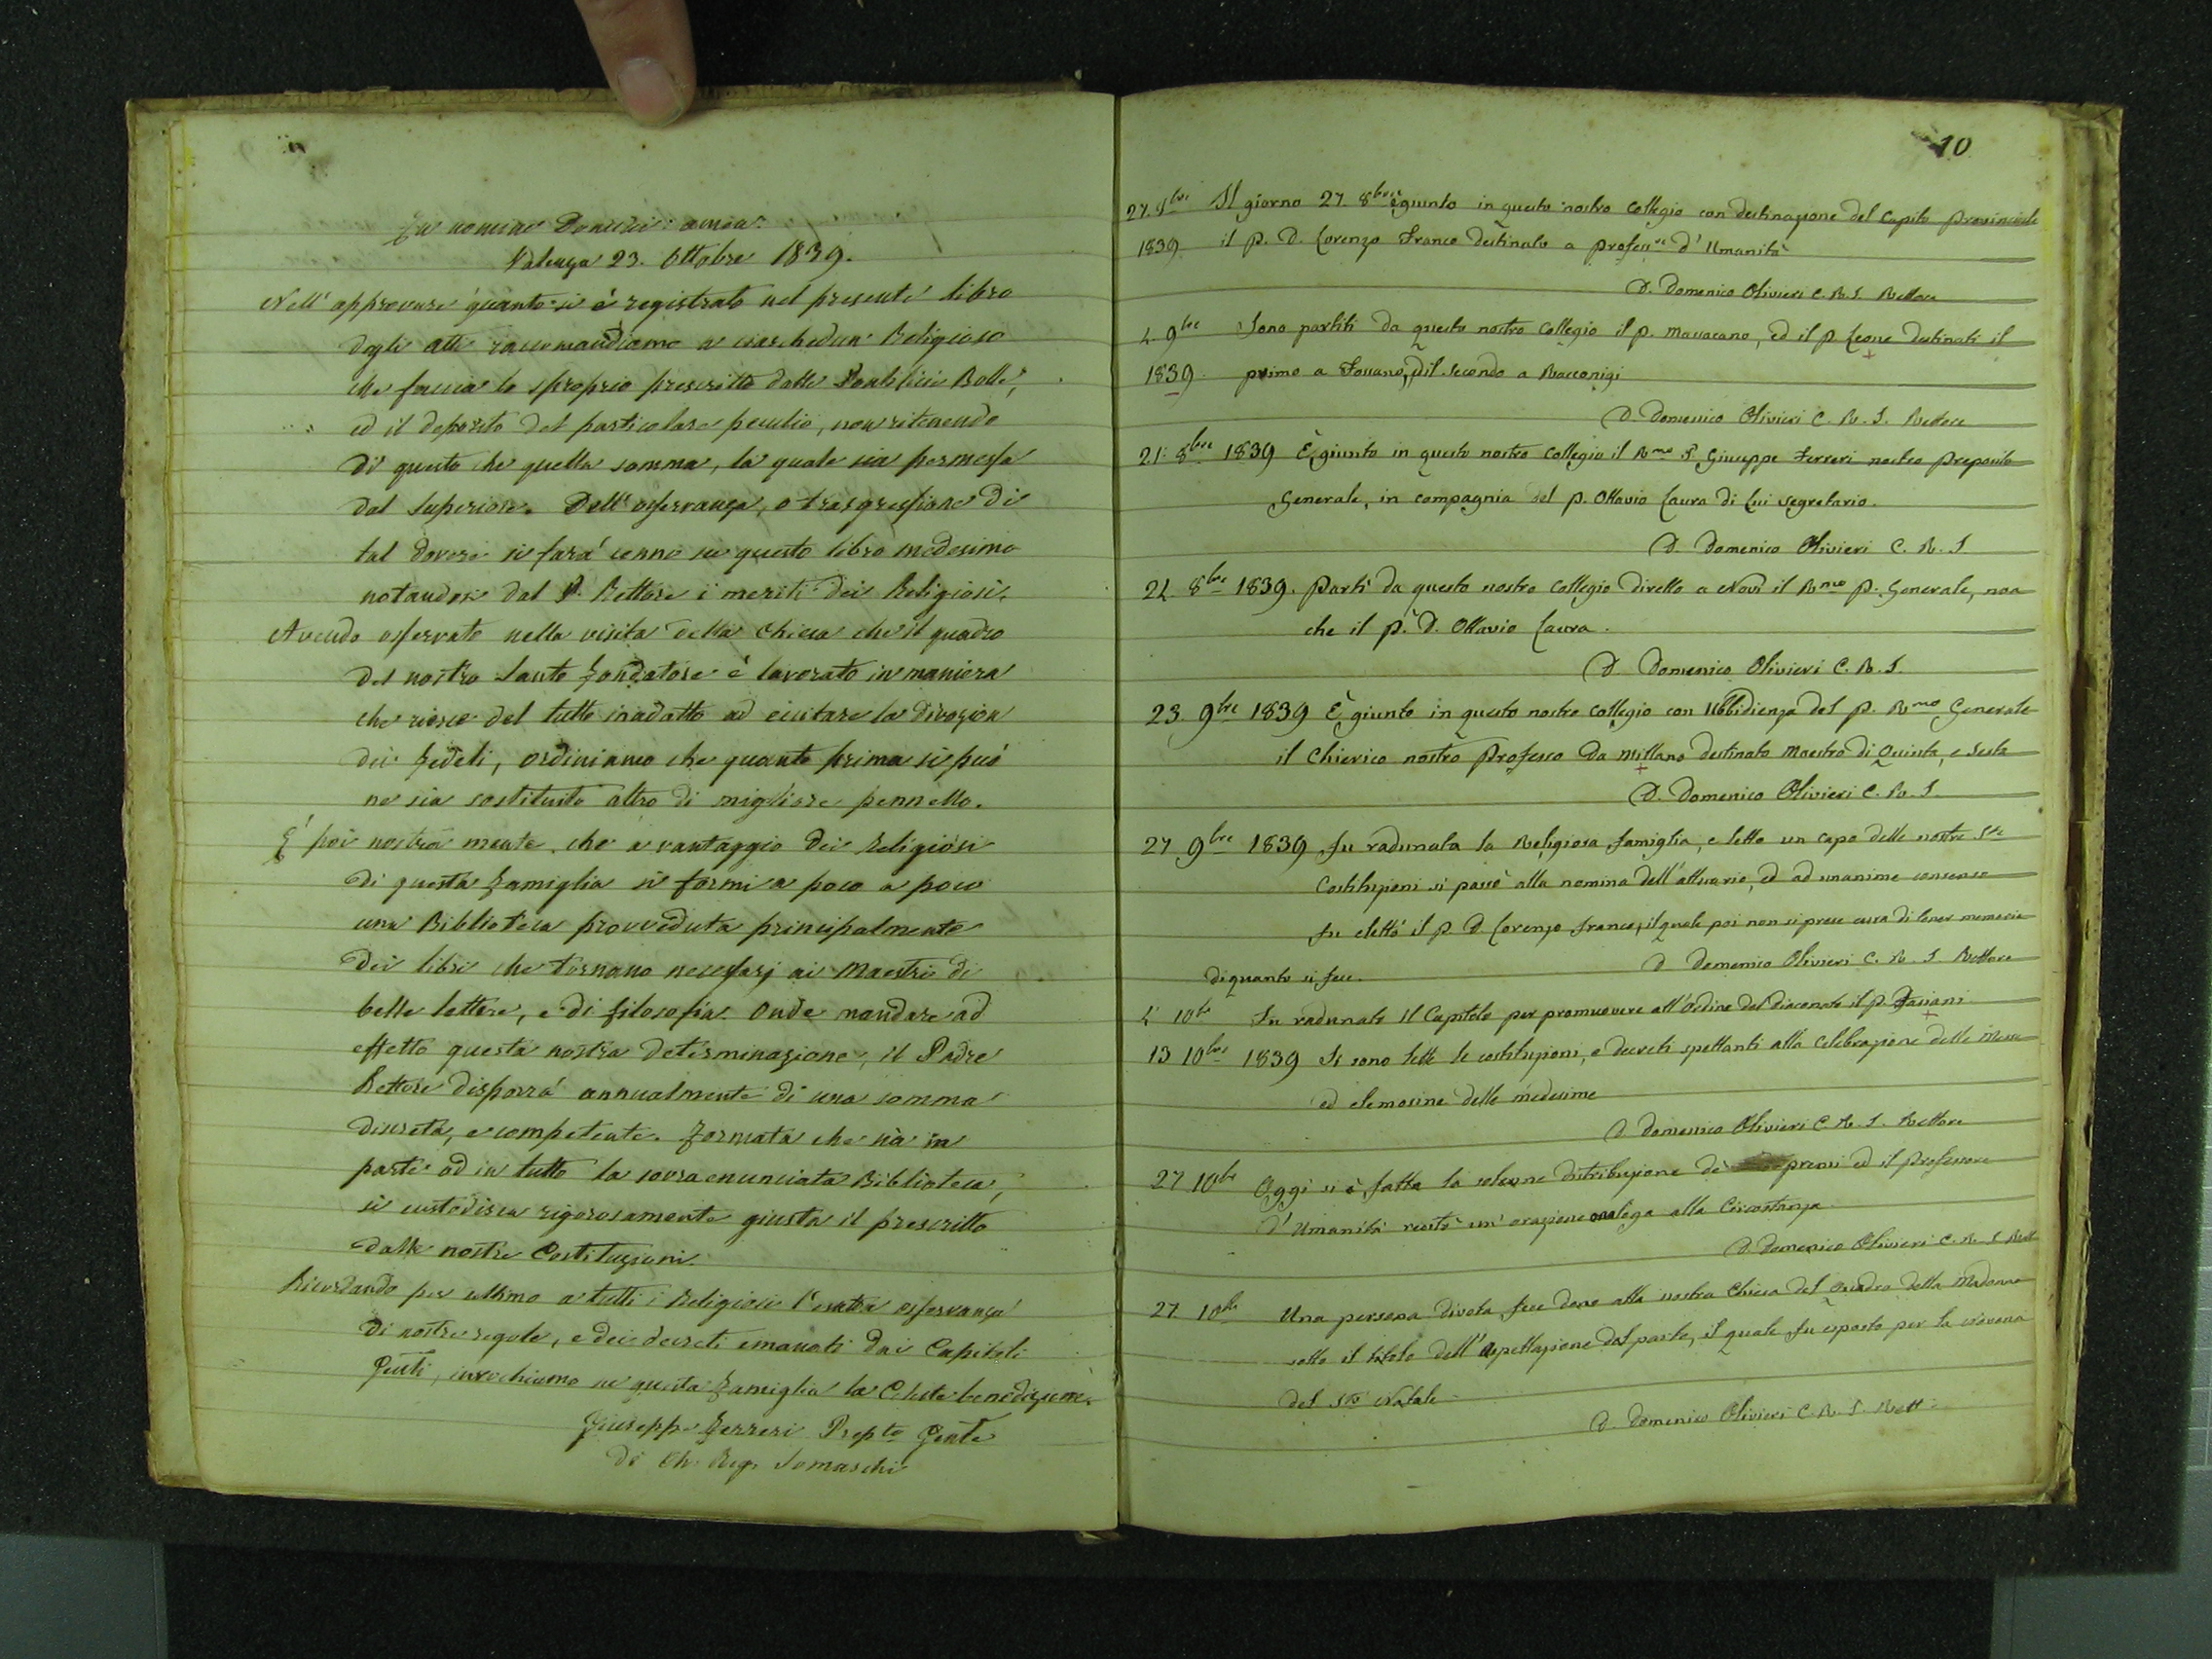 In nomine Domini: amen.
Valenza 23. Ottobre 1839.
Nell' approvare quanto si è registrato nel presente libro
degli atti raccomandiamo a ciaschedun Religioso
che faccia lo sproprio prescritto dalle Pontificie Bolle,
ed il deposito del particolare peculio, non ritenendo
di questo che quella somma, la quale sia permessa
dal Superiore. Dell' osservanza, o trasgressione di
tal dovere si farà cenno in questo libro medesimo
notandosi dal P. Rettore i meriti dei Religiosi.
Avendo osservato nella visita della Chiesa che il quadro
del nostro Santo Fondatore è lavorato in maniera
che riesce del tutto inadatto ad eccitare la divozion
dei Fedeli, ordiniamo che quanto prima si può
ne sia sostituito altro di migliore pennello.
E' poi nostra mente, che a vantaggio dei Religiosi
di questa Famiglia si formi a poco a poco
una Biblioteca provveduta principalmente
dei libri che tornano necessarj ai Maestri di
belle lettere, e di filosofia. Onde mandare ad
effetto questa nostra determinazione, il Padre
Rettore disporrà annualmente di una somma
discreta, e competente. Formata che sia in
parte od in tutto la sovra enunciata Biblioteca,
si custodisca rigorosamente giusta il prescritto
dalle nostre Costituzioni.
Ricordando per ultimo a tutti i Religiosi l'esatta osservanza
di nostre regole, e dei decreti emanati dai Capitoli
Gnli, invochiamo su questa Famiglia la Celeste benedizione.
Giuseppe Ferreri Prepto Genle
de Ch. Reg. Somaschi
10
27. 8bre Il giorno 27. 8bre è giunto in questo nostro Collegio con destinazione del Capito Provinciale
1839 il P. D. Lorenzo Franco destinato a Professre d' Umanità
D. Domenico Olivieri C. R. S. Rettore
4. 9bre Sono partiti da questo nostro Collegio il P. Massacano, ed il P. Leone destinati il
1839. primo a Fossano, ed il secondo a Racconigi
D. Domenico Olivieri C. R. S. Rettore
21: 8bre 1839 È giunto in questo nostro Collegio il Rmo P. Giuseppe Ferreri nostro Preposito
Generale, in compagnia del P. Ottavio Laura di Lui Segretario.
D. Domenico Olivieri C. R. S
24 8bre 1839. Partì da questo nostro Collegio diretto a Novi il Rmo P. Generale, non
che il P. D. Ottavio Laura.
D. Domenico Olivieri C. R. S.
23. 9bre 1839 È giunto in questo nostro Collegio con Ubbidienza del P. Rmo Generale
il Chierico nostro Professo Da Millano destinato Maestro di Quinta, e Sesta
D. Domenico Olivieri C. R. S.
27 9bre 1839 Fu radunata la Religiosa Famiglia, e letto un capo delle nostre Ste
Costituzioni si passò alla nomina dell' attuario, ed ad unanime consenso
fu eletto il P. D. Lorenzo Franco, il quale poi non si prese cura di tener memoria
di quanto si fece. D Domenico Olivieri C. R. S. Rettore
4 10bre Fu radunato il Capitolo per promuovere all' ordine del diaconato il P. Fasiani
13 10bre 1839 Si sono lette le costituzioni, e decreti spettanti alla Celebrazione delle Messe
ed elemosine delle medesime
D. Domenico Olivieri C. R. S. Rettore
27 10bre Oggi si è fatta la solenne distribuzione de' premi ed il Professore
d' Umanità recitò un' orazione analoga alla Circostanza.
D. Domenico Olivieri C. R. S. Rett
27 10bre Una persona divota fece dono alla nostra Chiesa del Quadro della Madonna
sotto il titolo dell' Aspettazione del parto, il quale fu esposto per la novena
del Sto Natale
D. Domenico Olivieri C. R. S. Rett